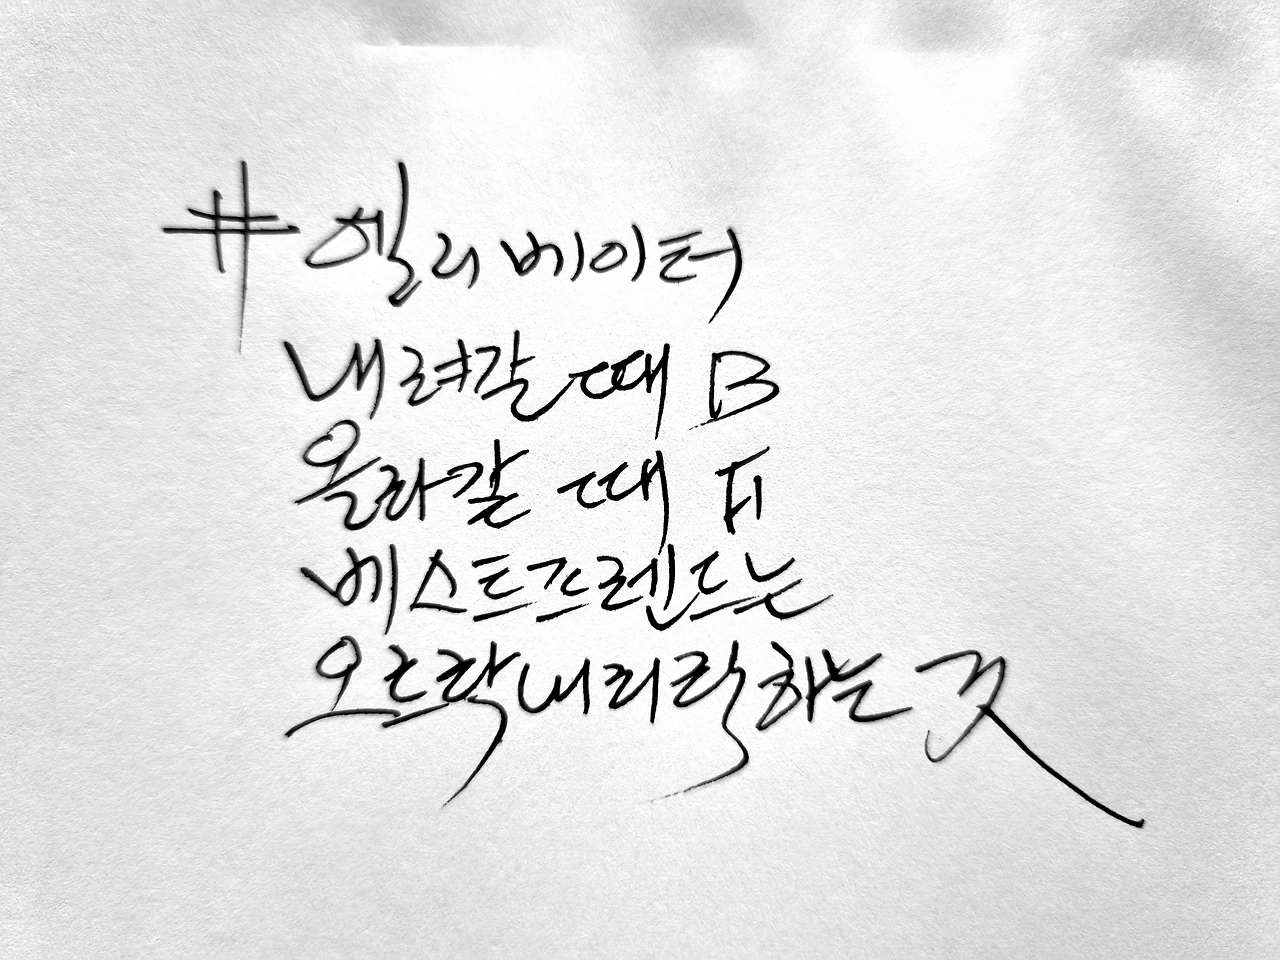 #엘리베이터
내려갈 때 B
올라갈 때 F
베스트프렌드는
오르락내리락하는 것